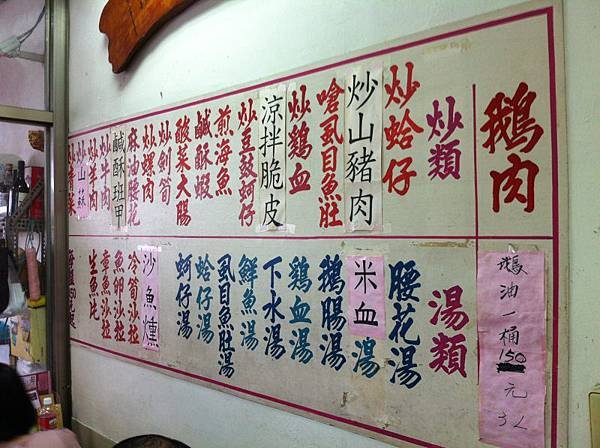 鵝肉
炒類
炒蛤仔
炒山豬肉
嗆虱目魚肚
炒鵝血
涼拌脆皮
炒豆豉蚵仔
煎海魚
鹹酥蝦
酸菜大腸
炒劍筍
炒螺肉
麻油腰花
鹹酥斑甲
炒牛肉
炒羊肉
炒山蘇
鵝油一桶150元
湯類
腰花湯
米血湯
鵝腸湯
鵝血湯
下水湯
鮮魚湯
虱目魚肚湯
蛤仔湯
蚵仔湯
沙魚燻
冷筍沙拉
魚卵沙拉
章魚沙拉
生魚片